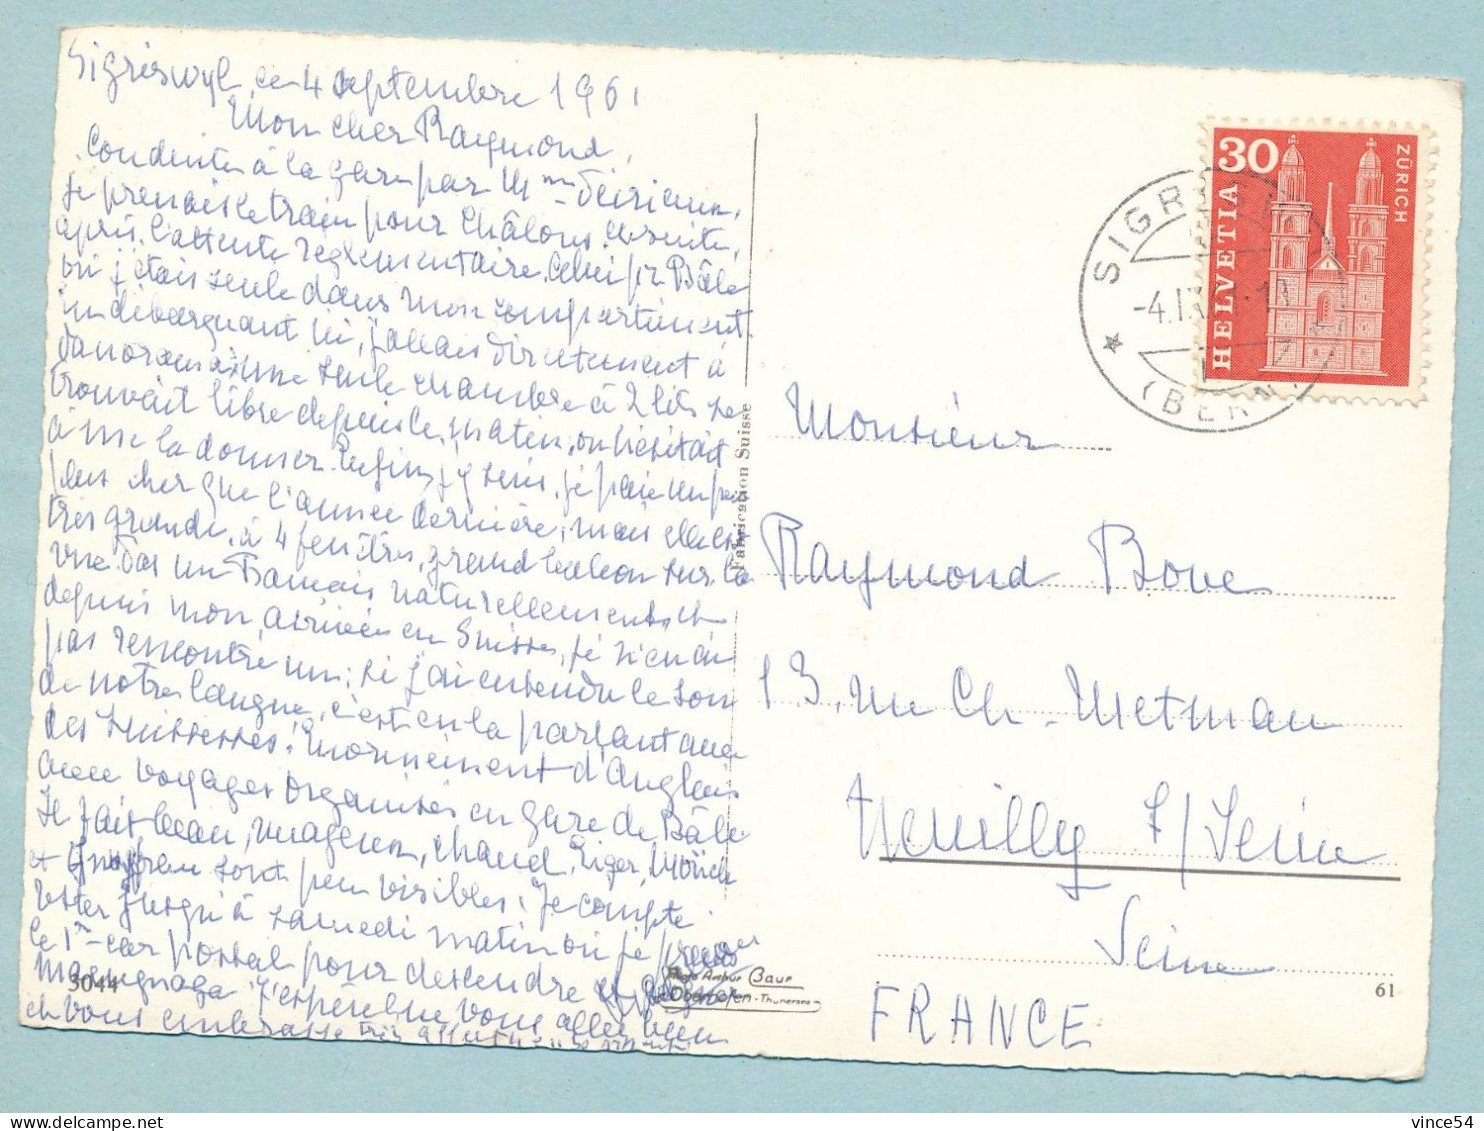 Sigriswyl, ce 4 septembre 1961
Mon cher Raymond,
Conduite à la gare par Mme
je prenais le train pour Châlons. Ensuite,
après l'attente réglementaire. Celui pr Bâle
où j'étais seule dans mon compartiment.
En débarquant ici, j'allais directement à
Panorama; une seule chambre à 2 lits se
trouvait libre depuis le matin, on hésitait
à me la donner. Enfin, j'y suis, je paie un peu
plus cher que l'année dernière, mais elle est
très grande, à 4 fenêtres, grand balcon sur la
vue. Pas un Français naturellement, et
depuis mon arrivée en Suisse, je n'en ai
pas rencontré un; si j'ai entendu le son
de notre langue, c'est en la parlant avec
des Suissesses! Énormément d'Anglais
avec voyages organisés en gare de Bâle
Il fait beau, nuageux, chaud. Eiger, Mönch
et Jungfrau sont peu visibles. Je compte
rester jusqu'à samedi matin où je prends
le 1er car postal pour descendre
J'espère que vous allez bien
et vous embrasse très affectueusement
3044
Photo Arthur Baur
Oberhofen-Thunersee
Fabrication Suisse
30
HELVETIA
ZÜRICH
SIGRISWIL
-4.IX.61-
(BERN)
Monsieur
Raymond Bove
13, rue Ch-Metman
Neuilly s/Seine
Seine
FRANCE
61
vince54